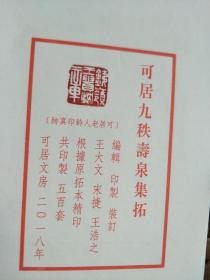 可居九秩壽泉集拓
編輯 印製 裝訂
王大文 宋捷 王浩之
根據原拓本精印
共印製 五百套
可居文房 二〇一八年
(可居老人鈐印真跡)